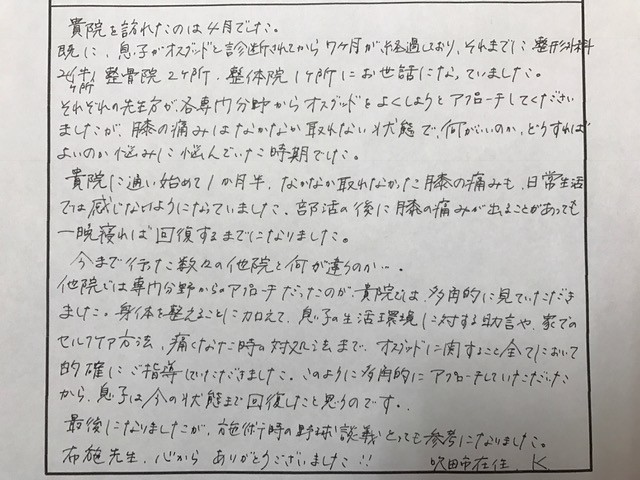 貴院を訪れたのは4月でした。
既に、息子がオスグッドと診断されてから7ケ月が、経過しており、それまでに整形外科
2ヶ所、整骨院2ケ所、整体院1ケ所にお世話になっていました。
それぞれの先生方が、各専門分野からオスグッドをよくしようとアプローチしてください
ましたが、膝の痛みはなかなか取れない状態で、何がいいのか、どうすれば
よいのか悩みに悩んでいた時期でした。
貴院に通い始めて1か月半、なかなか取れなかった膝の痛みも、日常生活
では感じないようになっていました。部活の後に膝の痛みが出ることがあっても
一晩寝れば回復するまでになりました。
今まで行った数々の他院と何が違うのか…。
他院では専門分野からのアプローチだったのが貴院では、多角的に見ていただき
ました。身体を整えることに加えて、息子の生活環境に対する助言や、家での
セルフケア方法、痛くなった時の対処法まで、オスグッドに関すること全てにおいて
的確にご指導していただきました。このように多角的にアプローチしていただいた
から、息子は今の状態まで回復したと思うのです。
最後になりましたが、施術時の野球談義とっても参考になりました。
布施先生、心からありがとうございました!! 吹田市在住、K